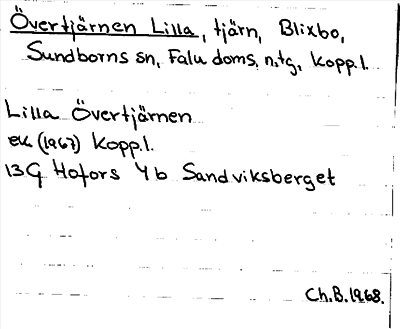 Övertjärnen Lilla, tjärn, Blixbo,
Sundborns sn, Falu doms. n. tg, Kopp.l.
Lilla Övertjärnen
ek (1967) Kopp.l.
13G Hofors 4b Sandviksberget
Ch.B.1968.